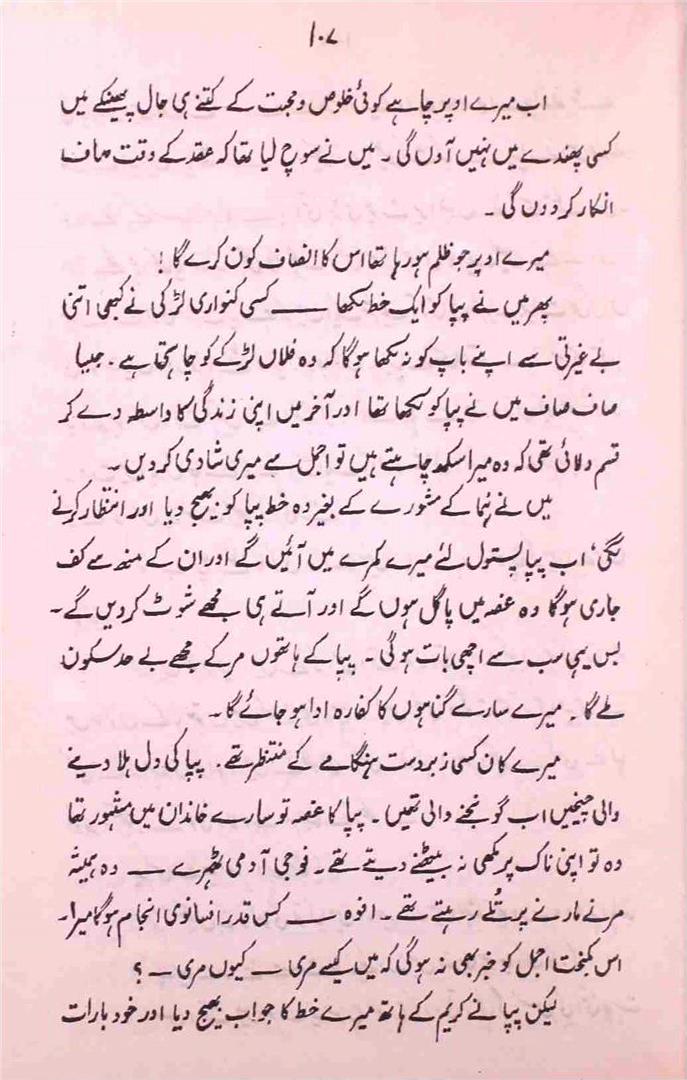 ۱۰۷
اب میرے اوپر چاہے کوئی خلوص ومحبت کے کتنے ہی جال پھینکے میں
کسی پھندے میں نہیں آوں گی ۔ میں نے سوچ لیا تھا کہ عقد کے وقت صاف
انکار کر دوں گی ۔
میرے اوپر جو ظلم ہو رہا تھا اس کا انصاف کون کرے گا !
پھر میں نے پپا کو ایک خط لکھا ـــــــ کسی کنواری لڑکی نے کبھی اتنی
بے غیرتی سے اپنے باپ کو نہ لکھا ہوگا کہ وہ فلاں لڑکے کو چاہتی ہے . جیسا
صاف صاف میں نے پپا کو لکھا تھا اور آخر میں اپنی زندگی کا واسطہ دے کر
قسم دلائی تھی کہ وہ میرا سکھ چاہتے ہیں تو اجمل سے میری شادی کر دیں ۔
میں نے ہُما کے مشورے کے بغیر وہ خط پپا کو بھیج دیا اور انتظار کرنے
لگی ' اب پپا پستول لئے میرے کمرے میں آئیں گے اور ان کے منھ سے کف
جاری ہوگا وہ غصہ میں پاگل ہوں گے اور آتے ہی مجھے شوٹ کر دیں گے ۔
بس یہی سب سے اچھی بات ہوگی ۔ پپا کے ہاتھوں مر کے مجھے بے حد سکون
ملے گا ۔ میرے سارے گناہوں کا کفارہ ادا ہو جائے گا ۔
میرے کان کسی زبردست ہنگامے کے منتظر تھے . پپا کی دل ہلا دینے
والی چیخیں اب گونجنے والی تھیں ۔ پپا کا غصہ تو سارے خاندان میں مشہور تھا
وہ تو اپنی ناک پر مکھی نہ بیٹھنے دیتے تھے ۔ فوجی آدمی ٹھہرے ــــ وہ ہمیشہ
مرنے مارنے پر تُلے رہتے تھے ۔ افوہ ــــ کس قدر افسانوی انجام ہوگا میرا ۔
اس کمبخت اجمل کو خبر بھی نہ ہوگی کہ میں کیسے مری ــ کیوں مری ــ ؟
لیکن پپا نے کریم کے ہاتھ میرے خط کا جواب بھیج دیا اور خود بارات